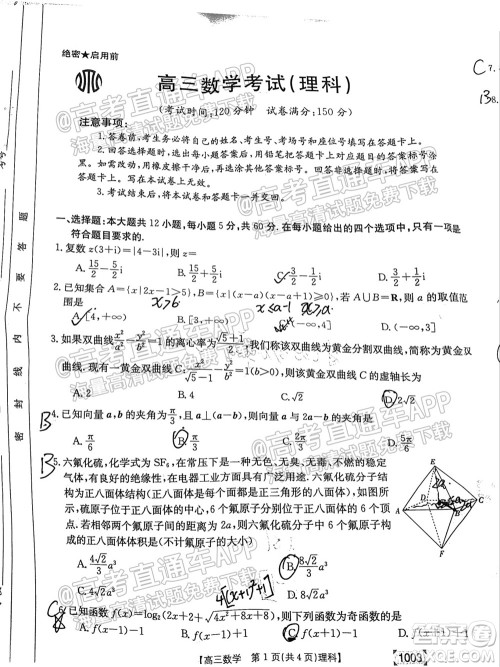 绝密★启用前
高三数学考试(理科)
(考试时间:120分钟 试卷满分:150分)
注意事项:
1.答卷前,考生务必将自己的姓名、考号、考场号和座位号填写在答题卡上。
2.回答选择题时,选出每小题答案后,用铅笔把答题卡上对应题目的答案标号涂黑。如需改动,用橡皮擦干净后,再选涂其他答案标号。回答非选择题时,将答案写在答题卡上。写在本试卷上无效。
3.考试结束后,将本试卷和答题卡一并交回。
一、选择题:本大题共12小题,每小题5分,共60分.在每小题给出的四个选项中,只有一项是
符合题目要求的.
1.复数z(3+i)=|4-3i|,则z=
A.15/2-5/2i B.15/2+5/2i C.3/2-1/2i D.3/2+1/2i
2.已知集合A={x|2x-1>5},B={x|(x-a)(x-a+1)≥0},若A∪B=R,则a的取值范
围是 x≤a-1 x≥a
A.[4,+∞) B.[3,+∞) C.(-∞,4] D.(-∞,3]
3.如果双曲线x²/a²-y²/b²=1的离心率为(√5+1)/2,我们称该双曲线为黄金分割双曲线,简称为黄金
双曲线.现有一黄金双曲线C:x²/(√5-1)-y²/b²=1(b>0),则该黄金双曲线C的虚轴长为
A.2 B.4 C.√2 D.2√2
B 4.已知向量a,b的夹角为π/3,且a⊥(a-b),则向量a与2a-b的夹角为
A.π/6 B.π/3 C.2π/3 D.5π/6
B 5.六氟化硫,化学式为SF₆,在常压下是一种无色、无臭、无毒、不燃的稳定
气体,有良好的绝缘性,在电器工业方面具有广泛用途.六氟化硫分子结
构为正八面体结构(正八面体每个面都是正三角形的八面体),如图所
示,硫原子位于正八面体的中心,6个氟原子分别位于正八面体的6个顶
点.若相邻两个氟原子间的距离为2a,则六氟化硫分子中6个氟原子构
成的正八面体体积是(不计氟原子的大小)
A.4√2/3a³ B.8√2/3a³
C.4√2a³ D.8√2a³
4[(x+1)²+1]
6.已知函数f(x)=log₂(2x+2+√(4x²+8x+8)),则下列函数为奇函数的是
A.f(x-1)-1 B.f(x+1)-1 C.f(x-1)+1 D.f(x+1)+1
【高三数学 第1页(共4页)理科】
1003
C 7.
B 8.
密封线内不要答题
高考直通车APP
海量高清试题免费下载